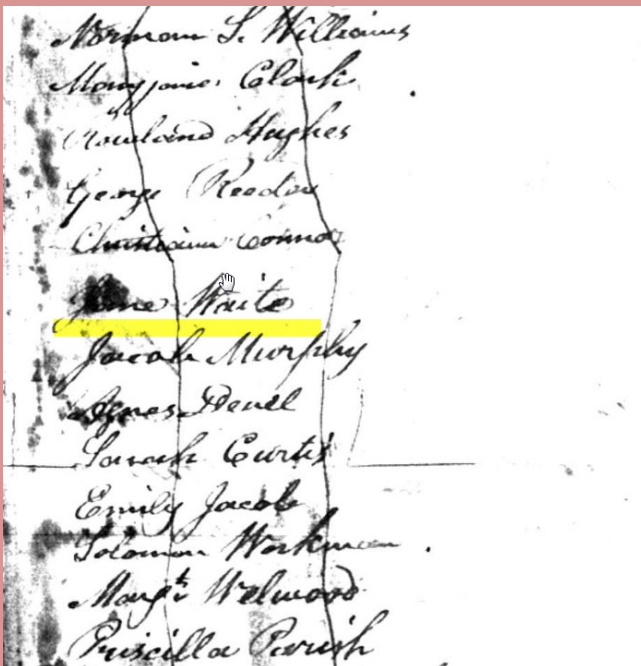 Norman S. Williams
Maryjane Clark
Rowland Hughes
George Reedon
Christiann Connor
Jane Waite
Jacob Murphy
Agnes Devell
Sarah Curtis
Emily Jacob
Solomon Workman
Margt Welwood
Priscilla Parish